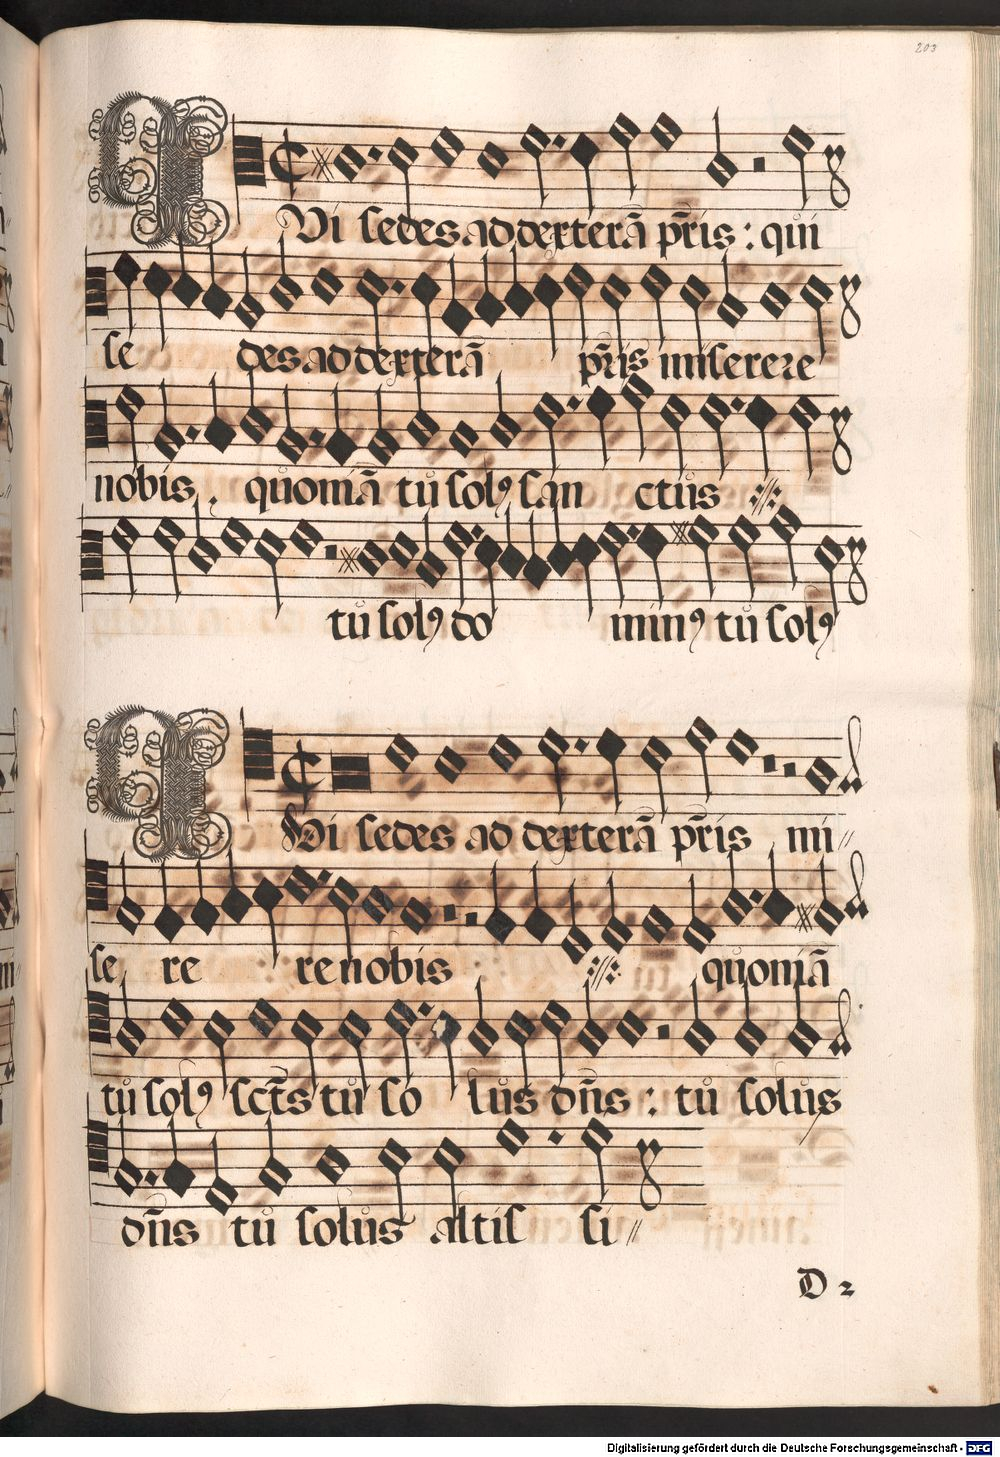 203
QVi sedes ad dexterã p̃ris : qui
se des ad dexterã p̃ris miserere
nobis . quoniã tu solꝰ san ctus ://:
tu solꝰ do minꝰ tu solꝰ
QVi sedes ad dexterã p̃ris mi//
se re re nobis ://: quoniã
tu solꝰ sct̃s tu so lus dñs : tu solus
dñs tu solus altis si//
D 2
Digitalisierung gefördert durch die Deutsche Forschungsgemeinschaft - DFG